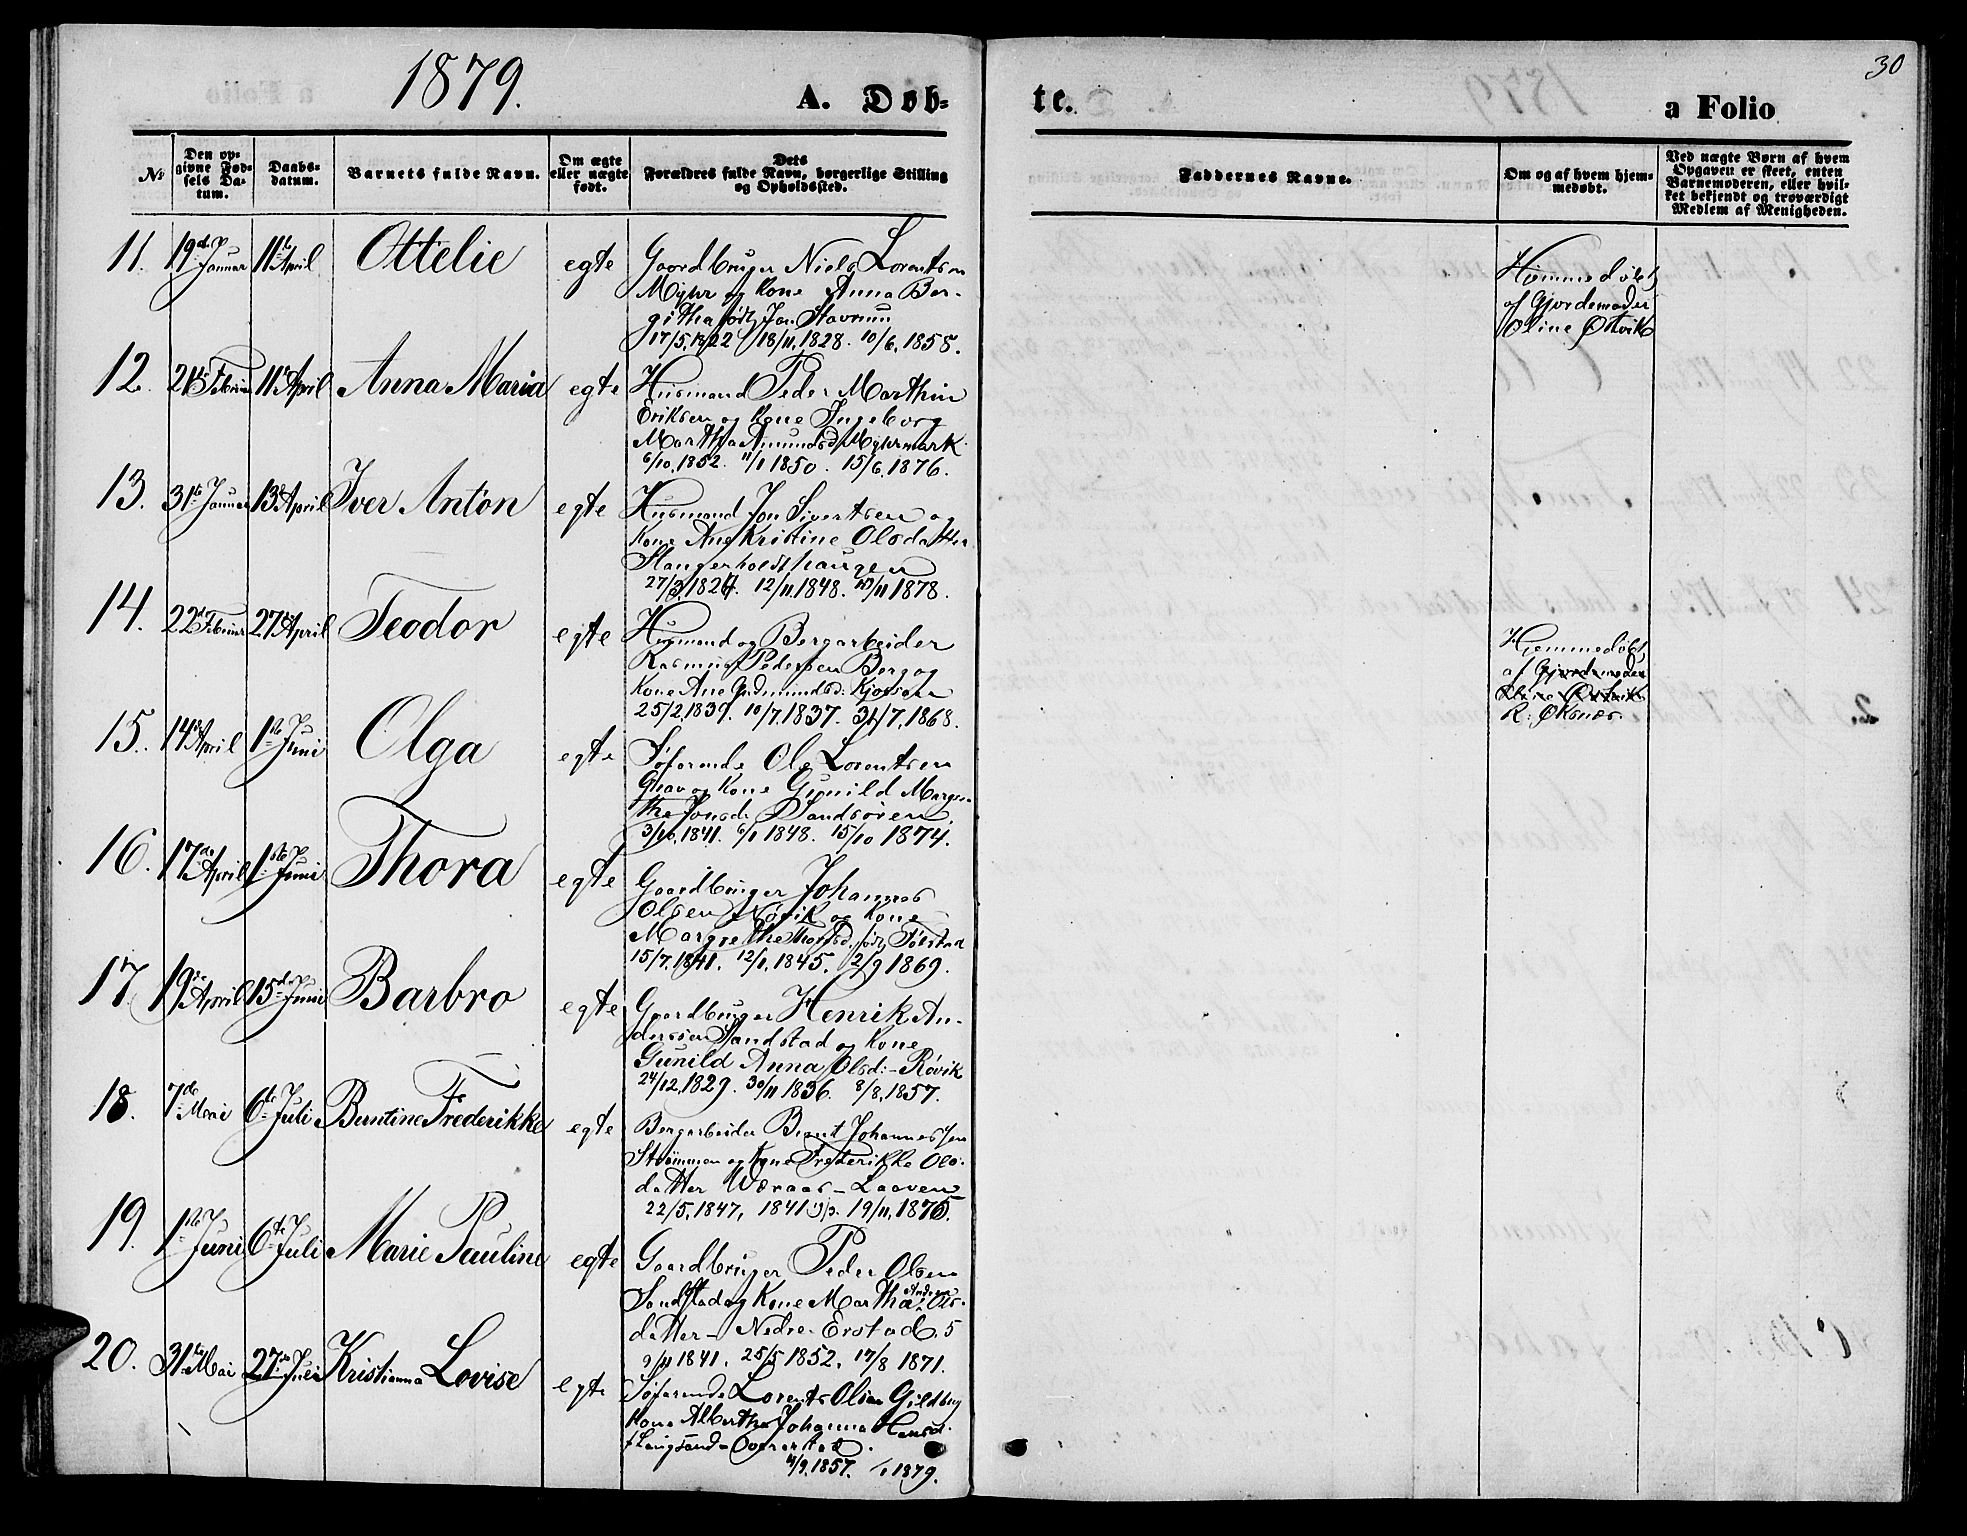 1879.
A. Døb=
te.
a Folio
30
№
Den op=
givne Fød=
sels Da=
tum.
Daabs=
datum.
Barnets fulde Navn.
Om ægte
eller nægte
født.
Dets
Forældres fulde Navn, borgerlige Stilling
og Opholdssted.
Faddernes Navne.
Om og af hvem hjem=
medøbt.
Ved nægte Børn af hvem
Opgaven er skeet, enten
Barnemoderen, eller hvil=
ket bekjendt og troværdigt
Medlem af Menigheden.
11. 19de Januar 11te April Ottelie egte Gaardbruger Niels Lorentsen
Myhr og Kone Anna Ber-
githa født Jon Stavrum
17/5, 1822 18/11, 1828. 10/6, 1858.
Hjemmedøbt,
af Gjordemoder
Oline Østvik
12. 21de Februar 11te April Anna Maria egte Husmand Peder Marthin
Eriksen og Kone Ingeborg
Martha Amundsd. Myhrmark
6/10, 1852. 11/1 1850. 15/6, 1876.
13. 31te Januar 13de April Iver Anton egte Husmand Jon Sivertsen og
Kone Ane Kristine Olsdatter
Stangerholdthaugen
27/3, 1824. 12/11, 1848. 10/11 1878.
14. 22de Februar 27de April Teodor egte Husmand og Bergarbeider
Rasmus Pedersen Berg og
Kone Ane Gudmundsd: Kjøssen
25/2, 1839. 10/7, 1837. 31/7, 1868.
Hjemmedøbt,
af Gjordemoder
Oline Østvik
R. Øksnæs.
15. 14de April 1ste Juni Olga egte Søfarende Ole Lorentsen
Grav og Kone Gunild Margre-
the Jonsd: Sandsøren
3/10, 1841. 6/1 1848. 15/10 1874.
16. 17de April 1ste Juni Thora egte Gaardbruger Johannes
Olsen Røvik og Kone
Margrethe Thorsd. født Følstad
15/7, 1841. 12/1, 1845. 2/9 1869.
17 19de April 15de Juni Barbro egte Gaardbruger Henrik An-
dersen Sandstad og Kone
Gunild Anna Olsd:- Røvik
24/12, 1829. 30/11 1836. 8/8, 1857.
18. 7de Mai 6te Juli Berntine Frederikke egte Bergarbeider Bernt Johannessen
Strømmen og Kone Frederikke Ols-
datter Woraas - Laaven
22/5, 1847, 1841 19/11, 1875.
19. 1ste Juni 6te Juli Marie Pauline egte Gaardbruger Peder Olsen
Sandstad og Kone Martha Andrea Ols-
datter - Nedre- Erstad. 5
9/11 1841. 25/5 1852, 17/8 1871.
20. 31te Mai 27de Juli Kristianna Lovise egte Søfarende Lorents Olsen Gildberg
Kone Albertha Johanna Hansd.
f Langsand - Overerstad.
4/9, 1857. 1879.